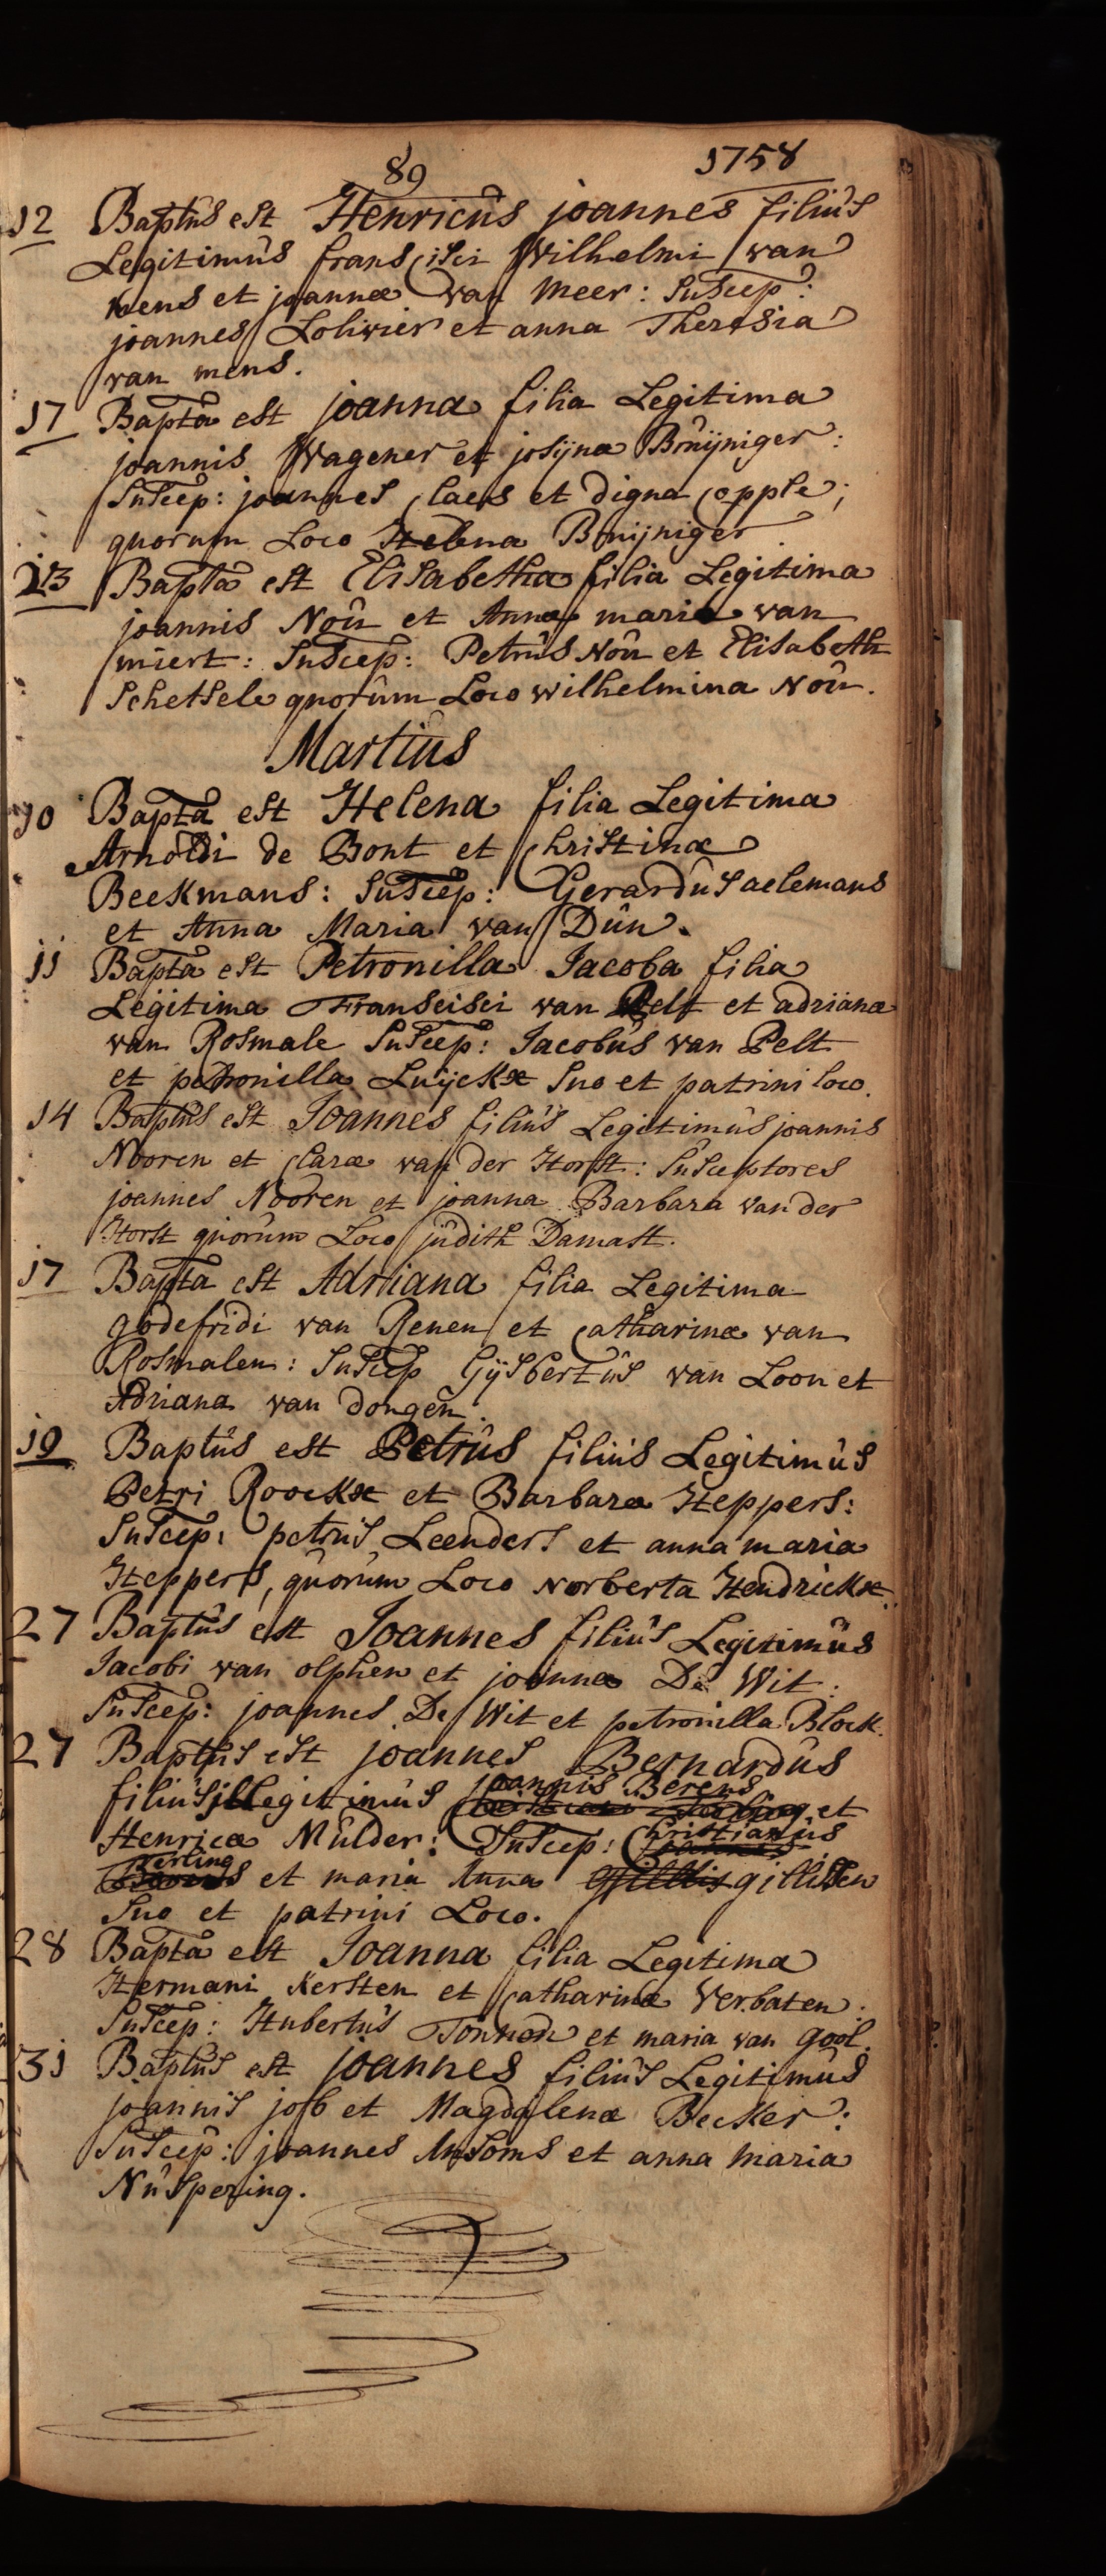 89 1758
12 Baptus est Henricus joannes filius
Legitimus fransisci Wilhelmi van
mens et joannæ van Meer: Suscep:
joannes Lolivier et anna Theresia
van mens.
17 Bapta est joanna filia Legitima
joannis Wagener et josyna Bruijniger:
Suscep: joannes Claes et digna Copple;
quorum Loco Helena Bruijniger
23 Bapta est Elisabetha filia Legitima
joannis Nou et Annæ mariæ van
miert: Suscep: Petrus Nou et Elisabeth
Schetsele quorum Loco wilhelmina Nou.
Martius
10 Bapta est Helena filia Legitima
Arnoldi de Bont et Christinæ
Beekmans: Suscep: Gerardus aelemans
et Anna Maria van Dun.
11 Bapta est Petronilla Jacoba filia
Legitima Franscisci van Pelt et adrianæ
van Rosmale Suscep: Jacobus van Pelt
et petronilla Luijckx suo et patrini loco.
14 Baptus est Joannes filius Legitimus joannis
Nooren et Claræ van der Horst: Susceptores
joannes Nooren et joanna Barbara van der
Horst quorum Loco judith Damast.
17 Bapta est Adriana filia Legitima
godefridi van Renen et Catharinæ van
Rosmalen: Suscep Gijsbertus van Loon et
Adriana van dongen.
19 Baptus est Petrus filius Legitimus
Petri Roockx et Barbaræ Heppers:
Suscep: petrus Leenders et anna maria
Heppers, quorum Loco Norberta Hendrickx.
27 Baptus est Joannes filius Legitimus
Jacobi van olphen et joannæ De Wit:
Suscep: joannes De Wit et petronilla Block.
27 Baptus est joannes Bernardus
joannis Berens
filius illegitimus et
Henricæ Mulder: Suscep: Christianus
et maria Anna gillissen
Suo et patrini Loco.
28 Bapta est Joanna filia Legitima
Hermani Kersten et Catharinæ Verbaten:
Suscep: Hubertus Tonnen et maria van gool.
31 Baptus est joannes filius Legitimus
joannis job et Magdalenæ Becker:
Suscep: joannes Ansoms et anna Maria
Nuspering.